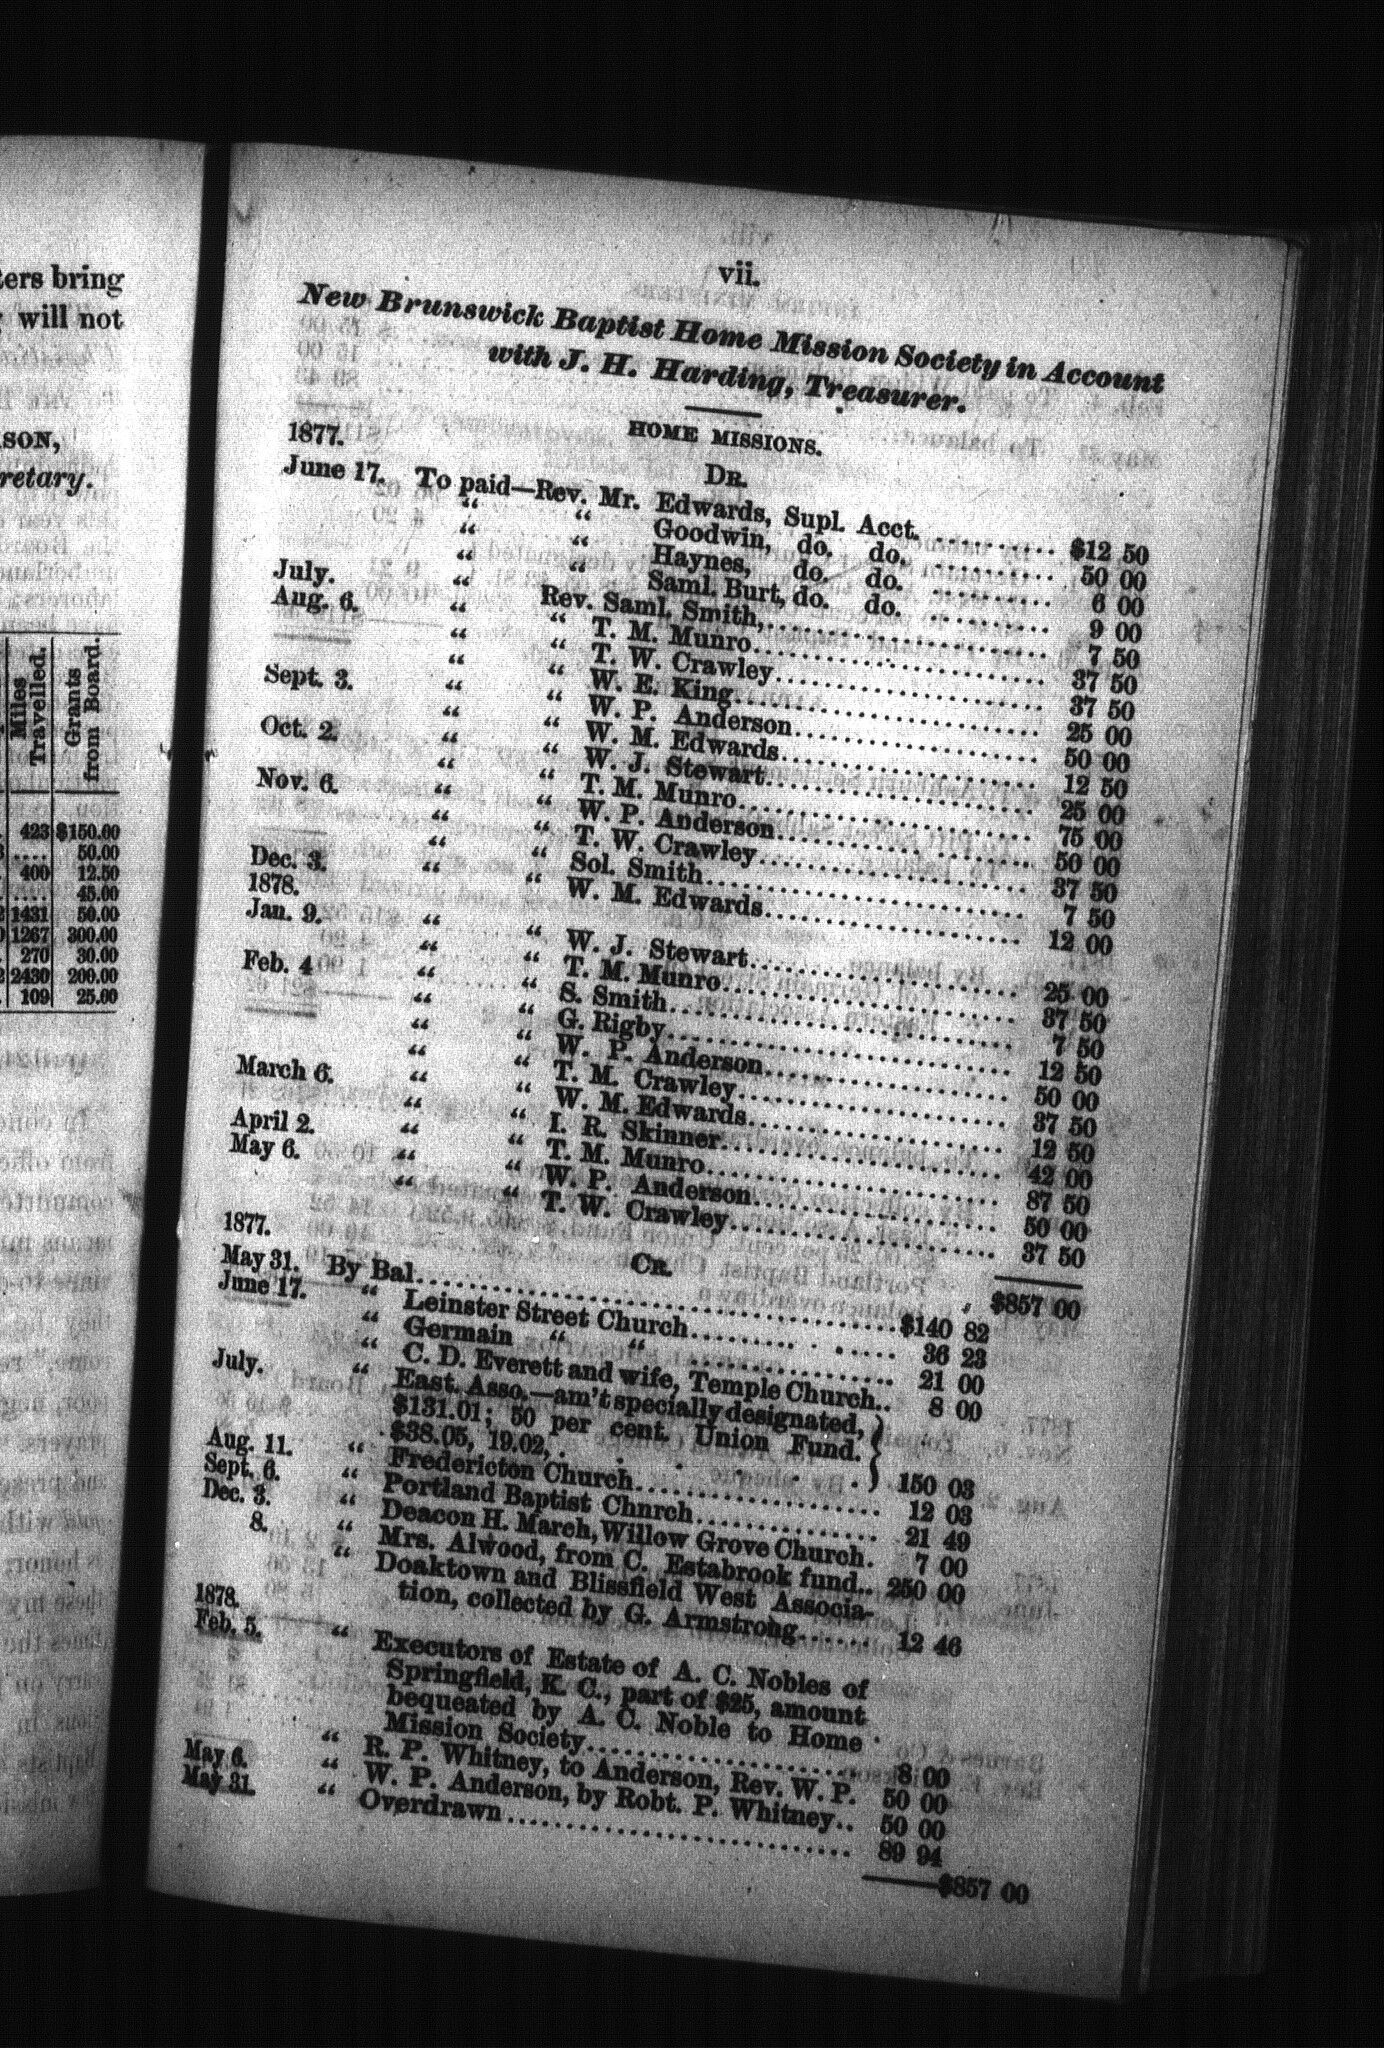 ters bring
will not
SON,
retary.
Miles Travelled. Grants from Board.
423 $150.00
.... 50.00
400 12.50
.... 45.00
1431 50.00
1267 300.00
270 30.00
2430 200.00
109 25.00
vii.
New Brunswick Baptist Home Mission Society in Account
with J. H. Harding, Treasurer.
HOME MISSIONS.
1877. DR.
June 17. To paid—Rev. Mr. Edwards, Supl. Acct. .......... $12 50
“ “ Goodwin, do. do. .......... 50 00
“ “ Haynes, do. do. .......... 6 00
“ “ Saml. Burt, do. do. .......... 9 00
July. “ Rev. Saml. Smith, .......... 7 50
Aug. 6. “ “ T. M. Munro .......... 37 50
“ “ T. W. Crawley .......... 37 50
“ “ W. E. King .......... 25 00
Sept. 3. “ “ W. P. Anderson .......... 50 00
“ “ W. M. Edwards .......... 12 50
Oct. 2. “ “ W. J. Stewart .......... 25 00
“ “ T. M. Munro .......... 75 00
Nov. 6. “ “ W. P. Anderson .......... 50 00
“ “ T. W. Crawley .......... 37 50
“ “ Sol. Smith .......... 7 50
Dec. 3. “ “ W. M. Edwards .......... 12 00
1878.
Jan. 9. “ “ W. J. Stewart .......... 25 00
“ “ T. M. Munro .......... 37 50
Feb. 4 “ “ S. Smith .......... 7 50
“ “ G. Rigby .......... 12 50
“ “ W. P. Anderson .......... 50 00
“ “ T. M. Crawley .......... 37 50
March 6. “ “ W. M. Edwards .......... 12 50
“ “ I. R. Skinner .......... 42 00
April 2. “ “ T. M. Munro .......... 87 50
May 6. “ “ W. P. Anderson .......... 50 00
“ “ T. W. Crawley .......... 37 50
$857 00
1877. CR.
May 31. By Bal .......... $140 82
June 17. “ Leinster Street Church .......... 36 23
“ Germain “ “ .......... 21 00
“ C. D. Everett and wife, Temple Church.. 8 00
July. “ East. Asso.—am't specially designated,
$131.01; 50 per cent. Union Fund.
$38.05, 19.02, . . . . . 150 03
Aug. 11. “ Fredericton Church .......... 12 03
Sept. 6. “ Portland Baptist Chnrch .......... 21 49
Dec. 3. “ Deacon H. March, Willow Grove Church. 7 00
8. “ Mrs. Alwood, from C. Estabrook fund.. 250 00
“ Doaktown and Blissfield West Associa-
tion, collected by G. Armstrong ...... 12 46
1878.
Feb. 5. “ Executors of Estate of A. C. Nobles of
Springfield, K. C., part of $25, amount
bequeated by A. C. Noble to Home
Mission Society .......... 8 00
“ R. P. Whitney, to Anderson, Rev. W. P. 50 00
May 6. “ W. P. Anderson, by Robt. P. Whitney.. 50 00
May 31. “ Overdrawn .......... 89 94
$857 00